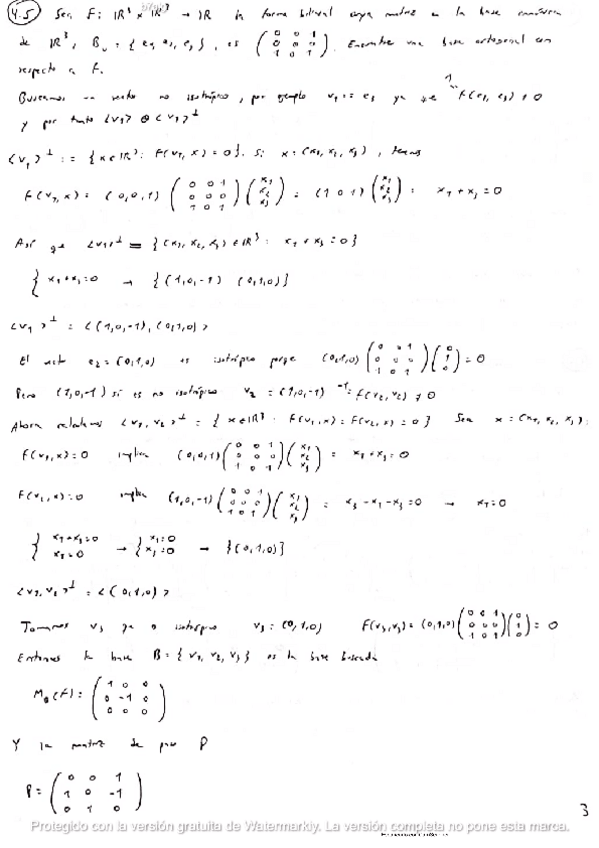 4.5) Sea F: ℝ³ × ℝ³ → ℝ la forma bilineal cuya matriz en la base canónica
de ℝ³, Bᵤ = {e₁, e₂, e₃}, es (0 0 1 / 0 0 0 / 1 0 1). Encontrar una base ortogonal con
respecto a F.
Buscamos un vector no isotrópico, por ejemplo v₁ := e₃ ya que F(e₃, e₃) ≠ 0
y por tanto <v₁> ⊕ <v₁>⊥
<v₁>⊥ := {x ∈ ℝ³: F(v₁, x) = 0}. Si x = (x₁, x₂, x₃), tenemos
F(v₁, x) = (0, 0, 1) (0 0 1 / 0 0 0 / 1 0 1) (x₁ / x₂ / x₃) = (1 0 1) (x₁ / x₂ / x₃) = x₁ + x₃ = 0
Así que <v₁>⊥ = {(x₁, x₂, x₃) ∈ ℝ³ : x₁ + x₃ = 0}
{ x₁ + x₃ = 0 → {(1, 0, -1) (0, 1, 0)}
<v₁>⊥ = <(1, 0, -1), (0, 1, 0)>
El vector e₂ = (0, 1, 0) es isotrópico porque (0, 1, 0) (0 0 1 / 0 0 0 / 1 0 1) (0 / 1 / 0) = 0
Pero (1, 0, -1) sí es no isotrópico v₂ = (1, 0, -1) -1 = F(v₂, v₂) ≠ 0
Ahora <v₁, v₂>⊥ = {x ∈ ℝ³ : F(v₁, x) = F(v₂, x) = 0} Sea x = (x₁, x₂, x₃):
F(v₁, x) = 0 implica (0, 0, 1) (0 0 1 / 0 0 0 / 1 0 1) (x₁ / x₂ / x₃) = x₁ + x₃ = 0
F(v₂, x) = 0 implica (1, 0, -1) (0 0 1 / 0 0 0 / 1 0 1) (x₁ / x₂ / x₃) = x₃ - x₁ - x₃ = 0 → x₁ = 0
{ x₁ + x₃ = 0 / x₁ = 0 → { x₁ = 0 / x₃ = 0 → {(0, 1, 0)}
<v₁, v₂>⊥ = <(0, 1, 0)>
Tomamos v₃ ya isotrópico v₃ = (0, 1, 0) F(v₃, v₃) = (0, 1, 0) (0 0 1 / 0 0 0 / 1 0 1) (0 / 1 / 0) = 0
Entonces la base B = {v₁, v₂, v₃} es la base buscada
M_B(F) = (1 0 0 / 0 -1 0 / 0 0 0)
Y la matriz de paso P
P = (0 0 1 / 1 0 -1 / 0 1 0)
3
Protegido con la versión gratuita de Watermarkly. La versión completa no pone esta marca.